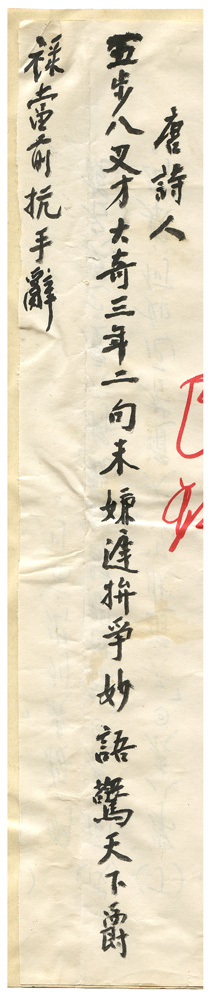 唐詩人
五步八叉才大奇三年二句未嫌遲拚爭妙語驚天下爵
祿當前抗手辭